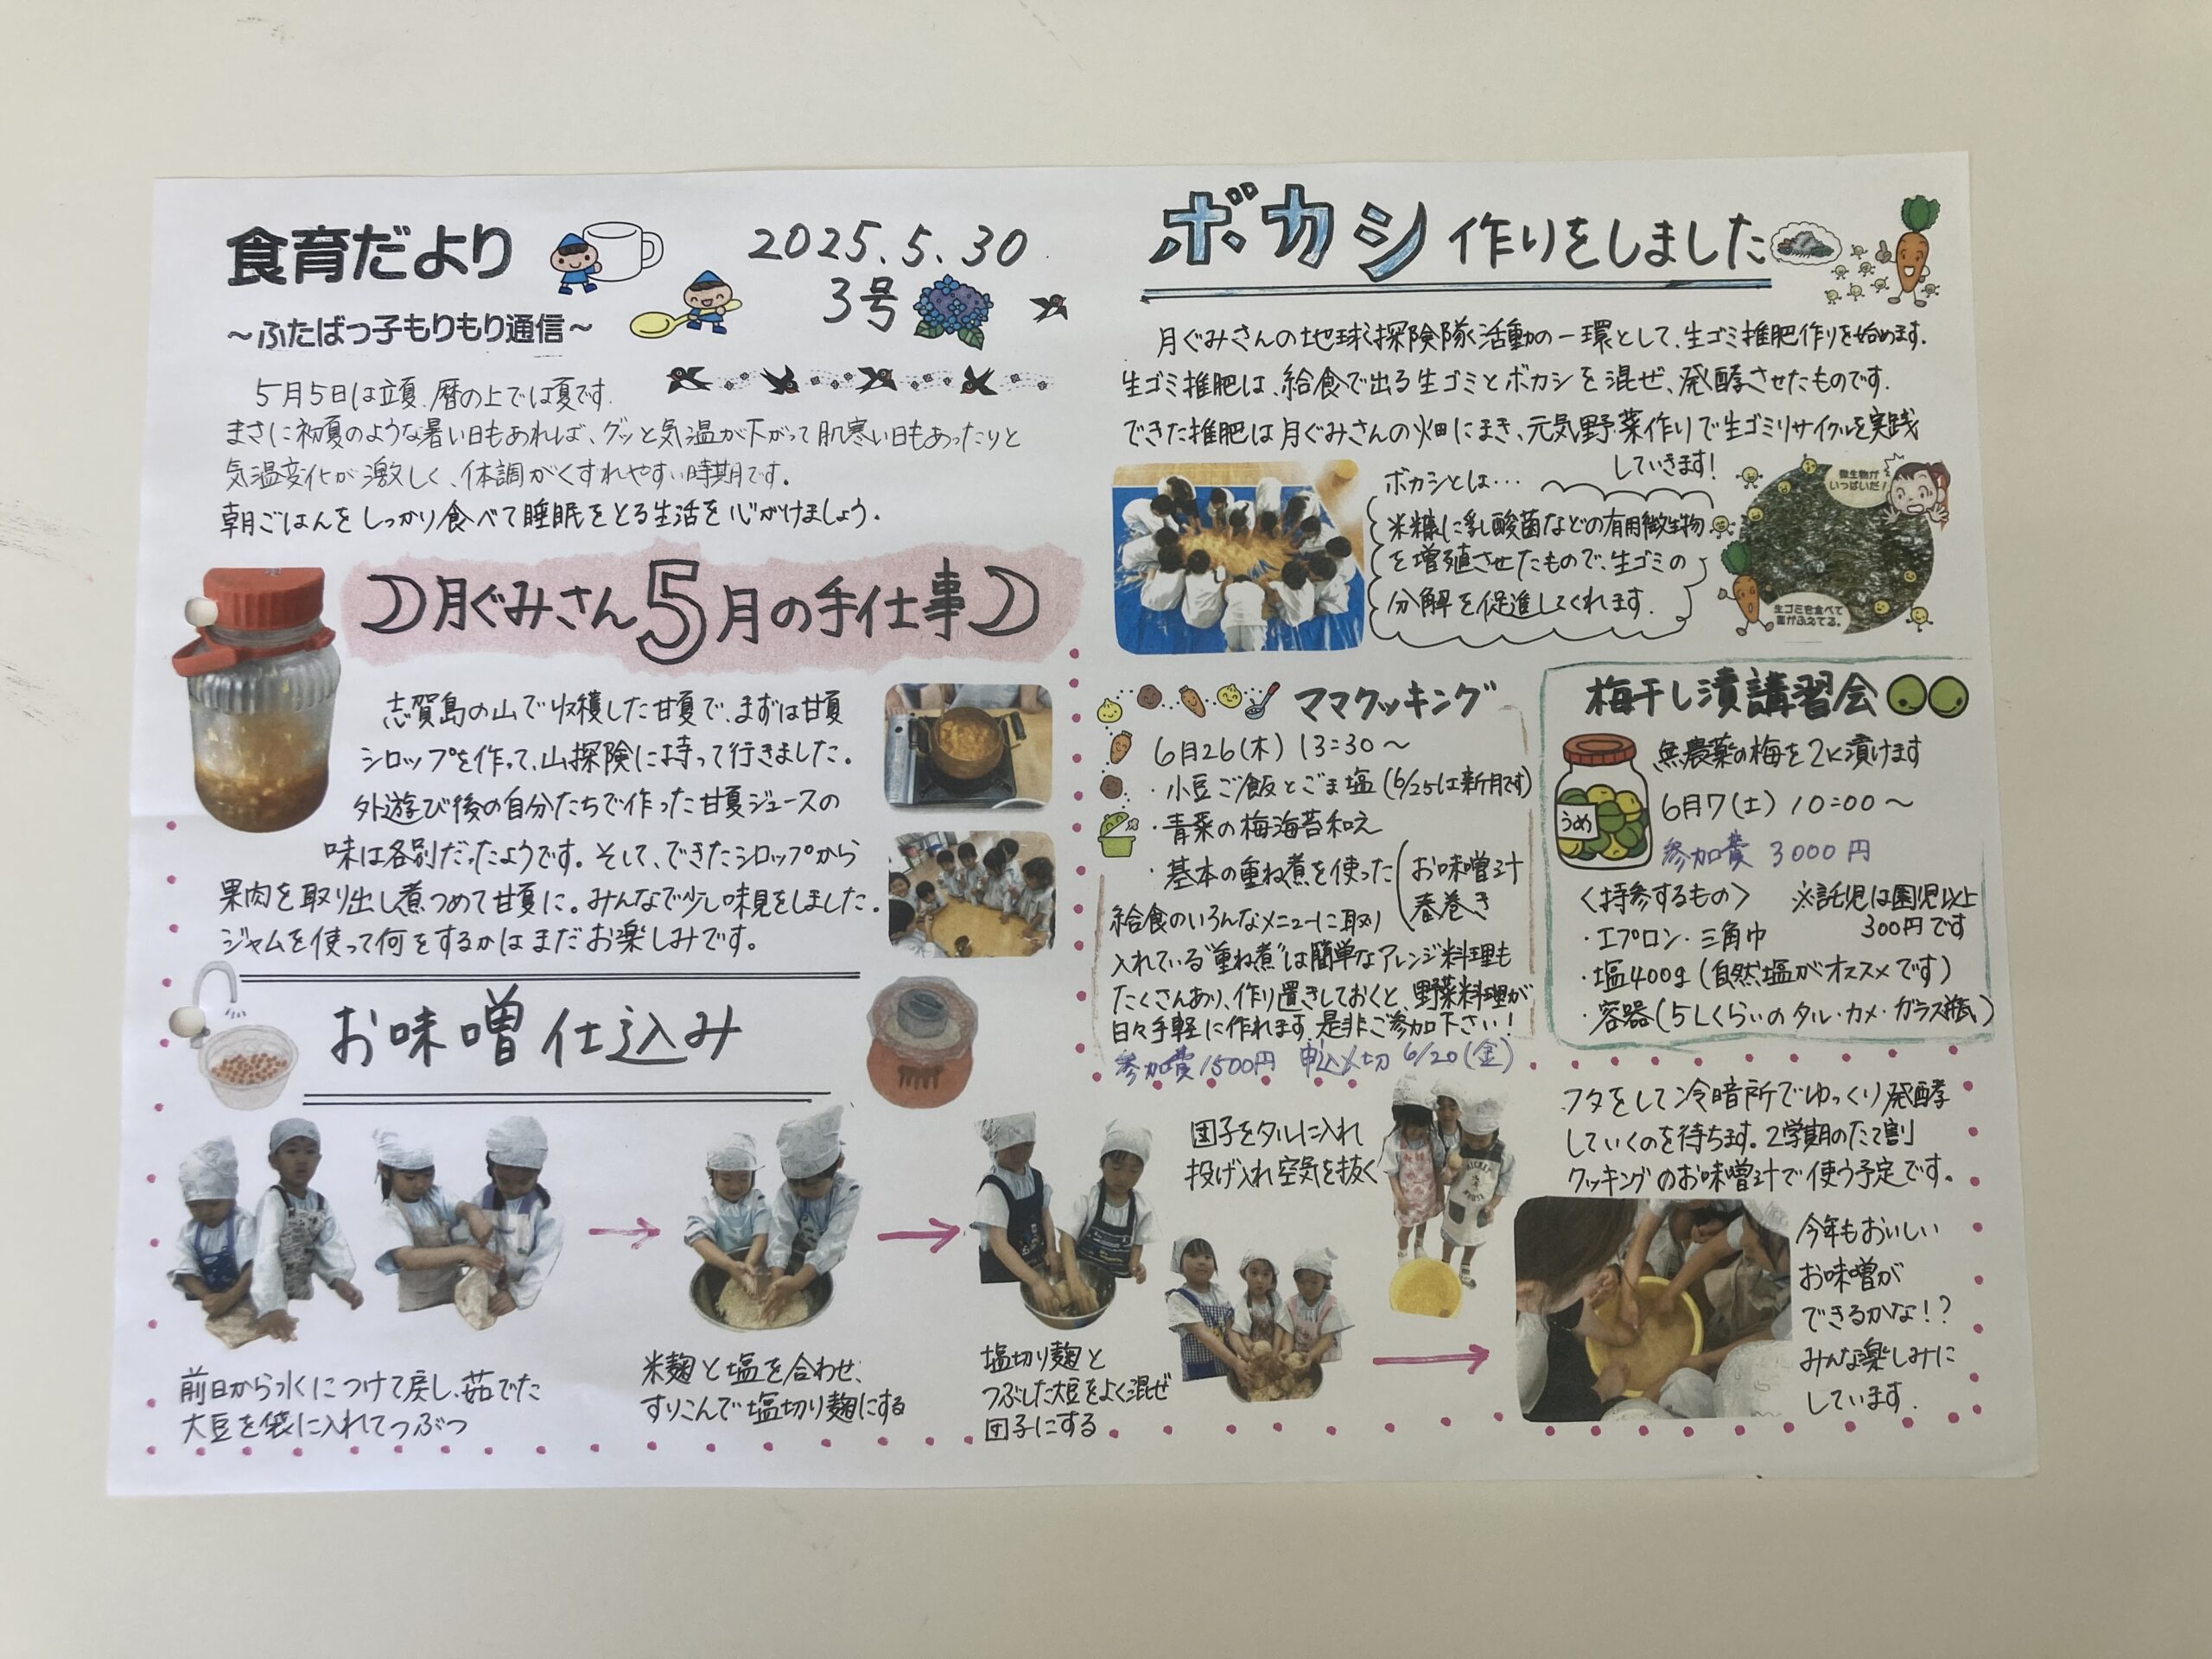 食育だより
～ふたばっ子もりもり通信～
2025.5.30
3号
5月5日は立夏、暦の上では夏です。
まさに初夏のような暑い日もあれば、グッと気温が下がって肌寒い日もあったりと
気温変化が激しく、体調がくずれやすい時期です。
朝ごはんをしっかり食べて睡眠をとる生活を心がけましょう。
月ぐみさん5月の手仕事
志賀島の山で収穫した甘夏で、まずは甘夏
シロップを作って、山探険に持って行きました。
外遊び後の自分たちで作った甘夏ジュースの
味は各別だったようです。そして、できたシロップから
果肉を取り出し煮つめて甘夏に。みんなで少し味見をしました。
ジャムを使って何をするかはまだお楽しみです。
お味噌仕込み
前日から水につけて戻し、茹でた
大豆を袋に入れてつぶつ
米麹と塩を合わせ、
すりこんで塩切り麹にする
塩切り麹と
つぶした大豆をよく混ぜ
団子にする
団子をタルに入れ
投げ入れ空気を抜く
フタをして冷暗所でゆっくり発酵
していくのを待ちます。2学期のたて割
クッキングのお味噌汁で使う予定です。
今年もおいしい
お味噌が
できるかな!?
みんな楽しみに
しています.
ボカシ作りをしました
月ぐみさんの地球探険隊活動の一環として、生ゴミ推肥作りを始めます.
生ゴミ推肥は、給食で出る生ゴミとボカシを混ぜ、発酵させたものです.
できた推肥は月ぐみさんの畑にまき、元気野菜作りで生ゴミリサイクルを実践
していきます!
ボカシとは…
米糠に乳酸菌などの有用微生物
を増殖させたもので、生ゴミの
分解を促進してくれます.
微生物が
いっぱいだ!
生ゴミを食べて
菌がふえてる。
ママクッキング
6月26(木) 13:30～
・小豆ご飯とごま塩(6/25は新月です)
・青菜の梅海苔和え
・基本の重ね煮を使った(お味噌汁
春巻き
給食のいろんなメニューに取り
入れている"重ね煮"は簡単なアレンジ料理も
たくさんあり、作り置きしておくと、野菜料理が
日々手軽に作れます.是非ご参加下さい!
参加費1500円 申込〆切 6/20(金)
梅干し漬講習会
無農薬の梅を2k漬けます
うめ
6月7(土) 10:00～
参加費 3000円
<持参するもの> ※託児は園児以上
300円です
・エプロン・三角巾
・塩400g(自然塩がオススメです)
・容器(5Lくらいのタル・カメ・ガラス瓶)